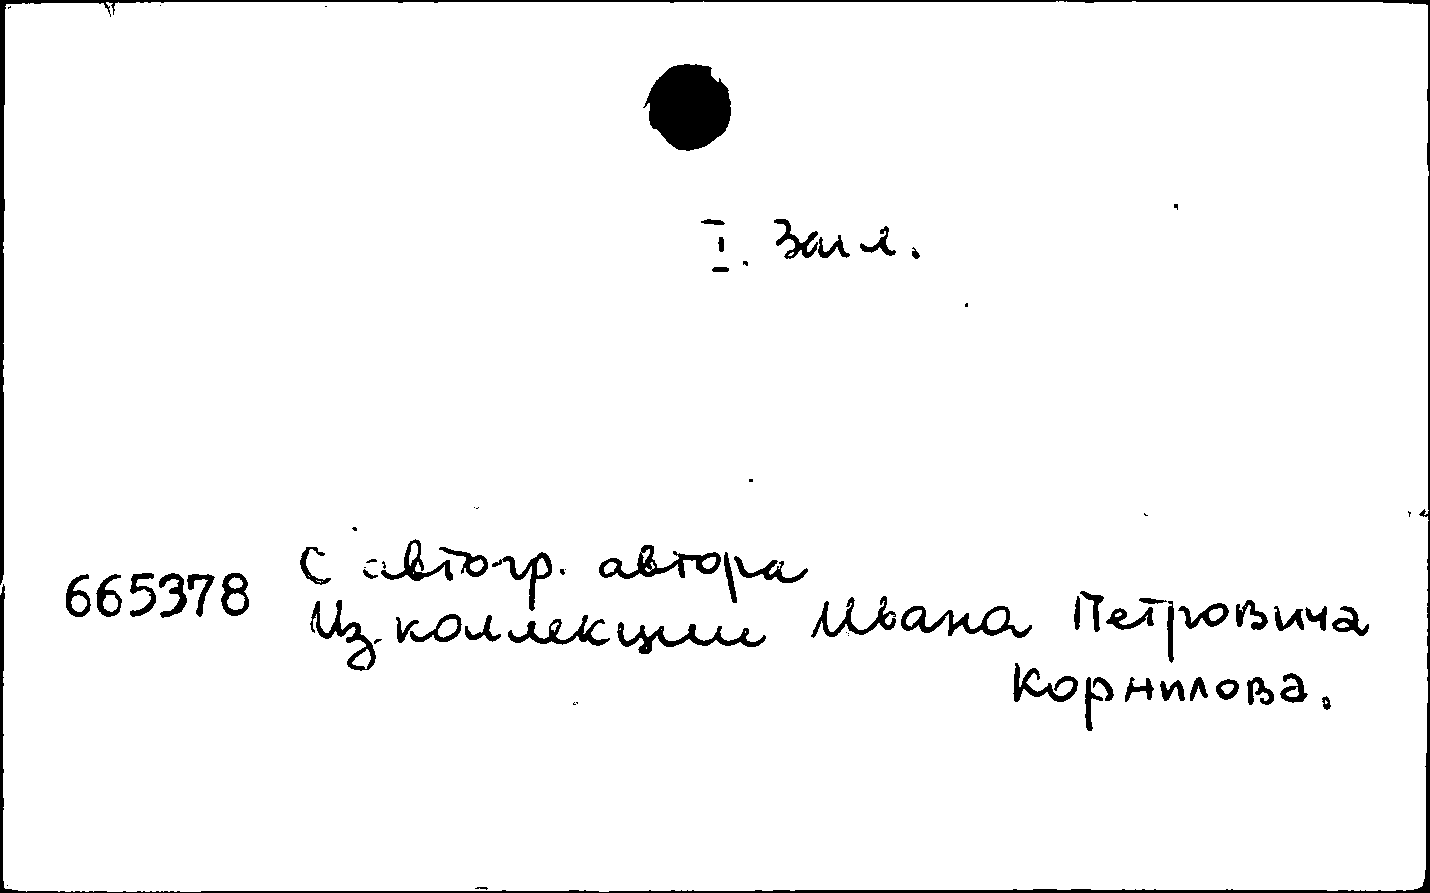 I. Загл.
С автогр. автора
665378
Из коллекции Ивана Петровича
Корнилова.